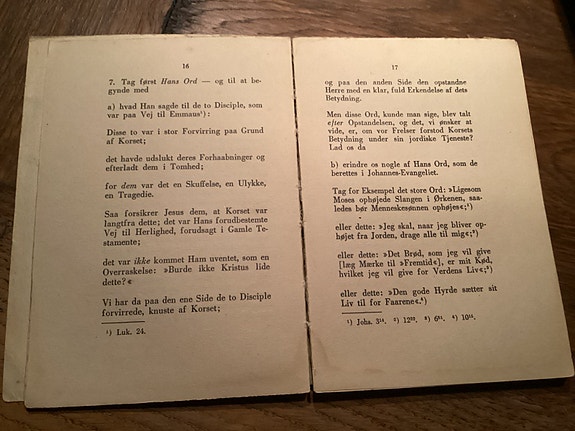 16
7. Tag først Hans Ord — og til at be-
gynde med
a) hvad Han sagde til de to Disciple, som
var paa Vej til Emmaus¹):
Disse to var i stor Forvirring paa Grund
af Korset;
det havde udslukt deres Forhaabninger og
efterladt dem i Tomhed;
for dem var det en Skuffelse, en Ulykke,
en Tragedie.
Saa forsikrer Jesus dem, at Korset var
langtfra dette; det var Hans forudbestemte
Vej til Herlighed, forudsagt i Gamle Te-
stamente;
det var ikke kommet Ham uventet, som en
Overraskelse: »Burde ikke Kristus lide
dette?«
Vi har da paa den ene Side de to Disciple
forvirrede, knuste af Korset;
¹) Luk. 24.
17
og paa den anden Side den opstandne
Herre med en klar, fuld Erkendelse af dets
Betydning.
Men disse Ord, kunde man sige, blev talt
efter Opstandelsen, og det, vi ønsker at
vide, er, om vor Frelser forstod Korsets
Betydning under sin jordiske Tjeneste?
Lad os da
b) erindre os nogle af Hans Ord, som de
berettes i Johannes-Evangeliet.
Tag for Eksempel det store Ord: »Ligesom
Moses ophøjede Slangen i Ørkenen, saa-
ledes bør Menneskesønnen ophøjes«;¹)
eller dette: »Jeg skal, naar jeg bliver op-
højet fra Jorden, drage alle til mig«;²)
eller dette: »Det Brød, som jeg vil give
[læg Mærke til »Fremtid«], er mit Kød,
hvilket jeg vil give for Verdens Liv«;³)
eller dette: »Den gode Hyrde sætter sit
Liv til for Faarene«.⁴)
¹) Johs. 3¹⁴. ²) 12³². ³) 6⁵¹. ⁴) 10¹⁵.